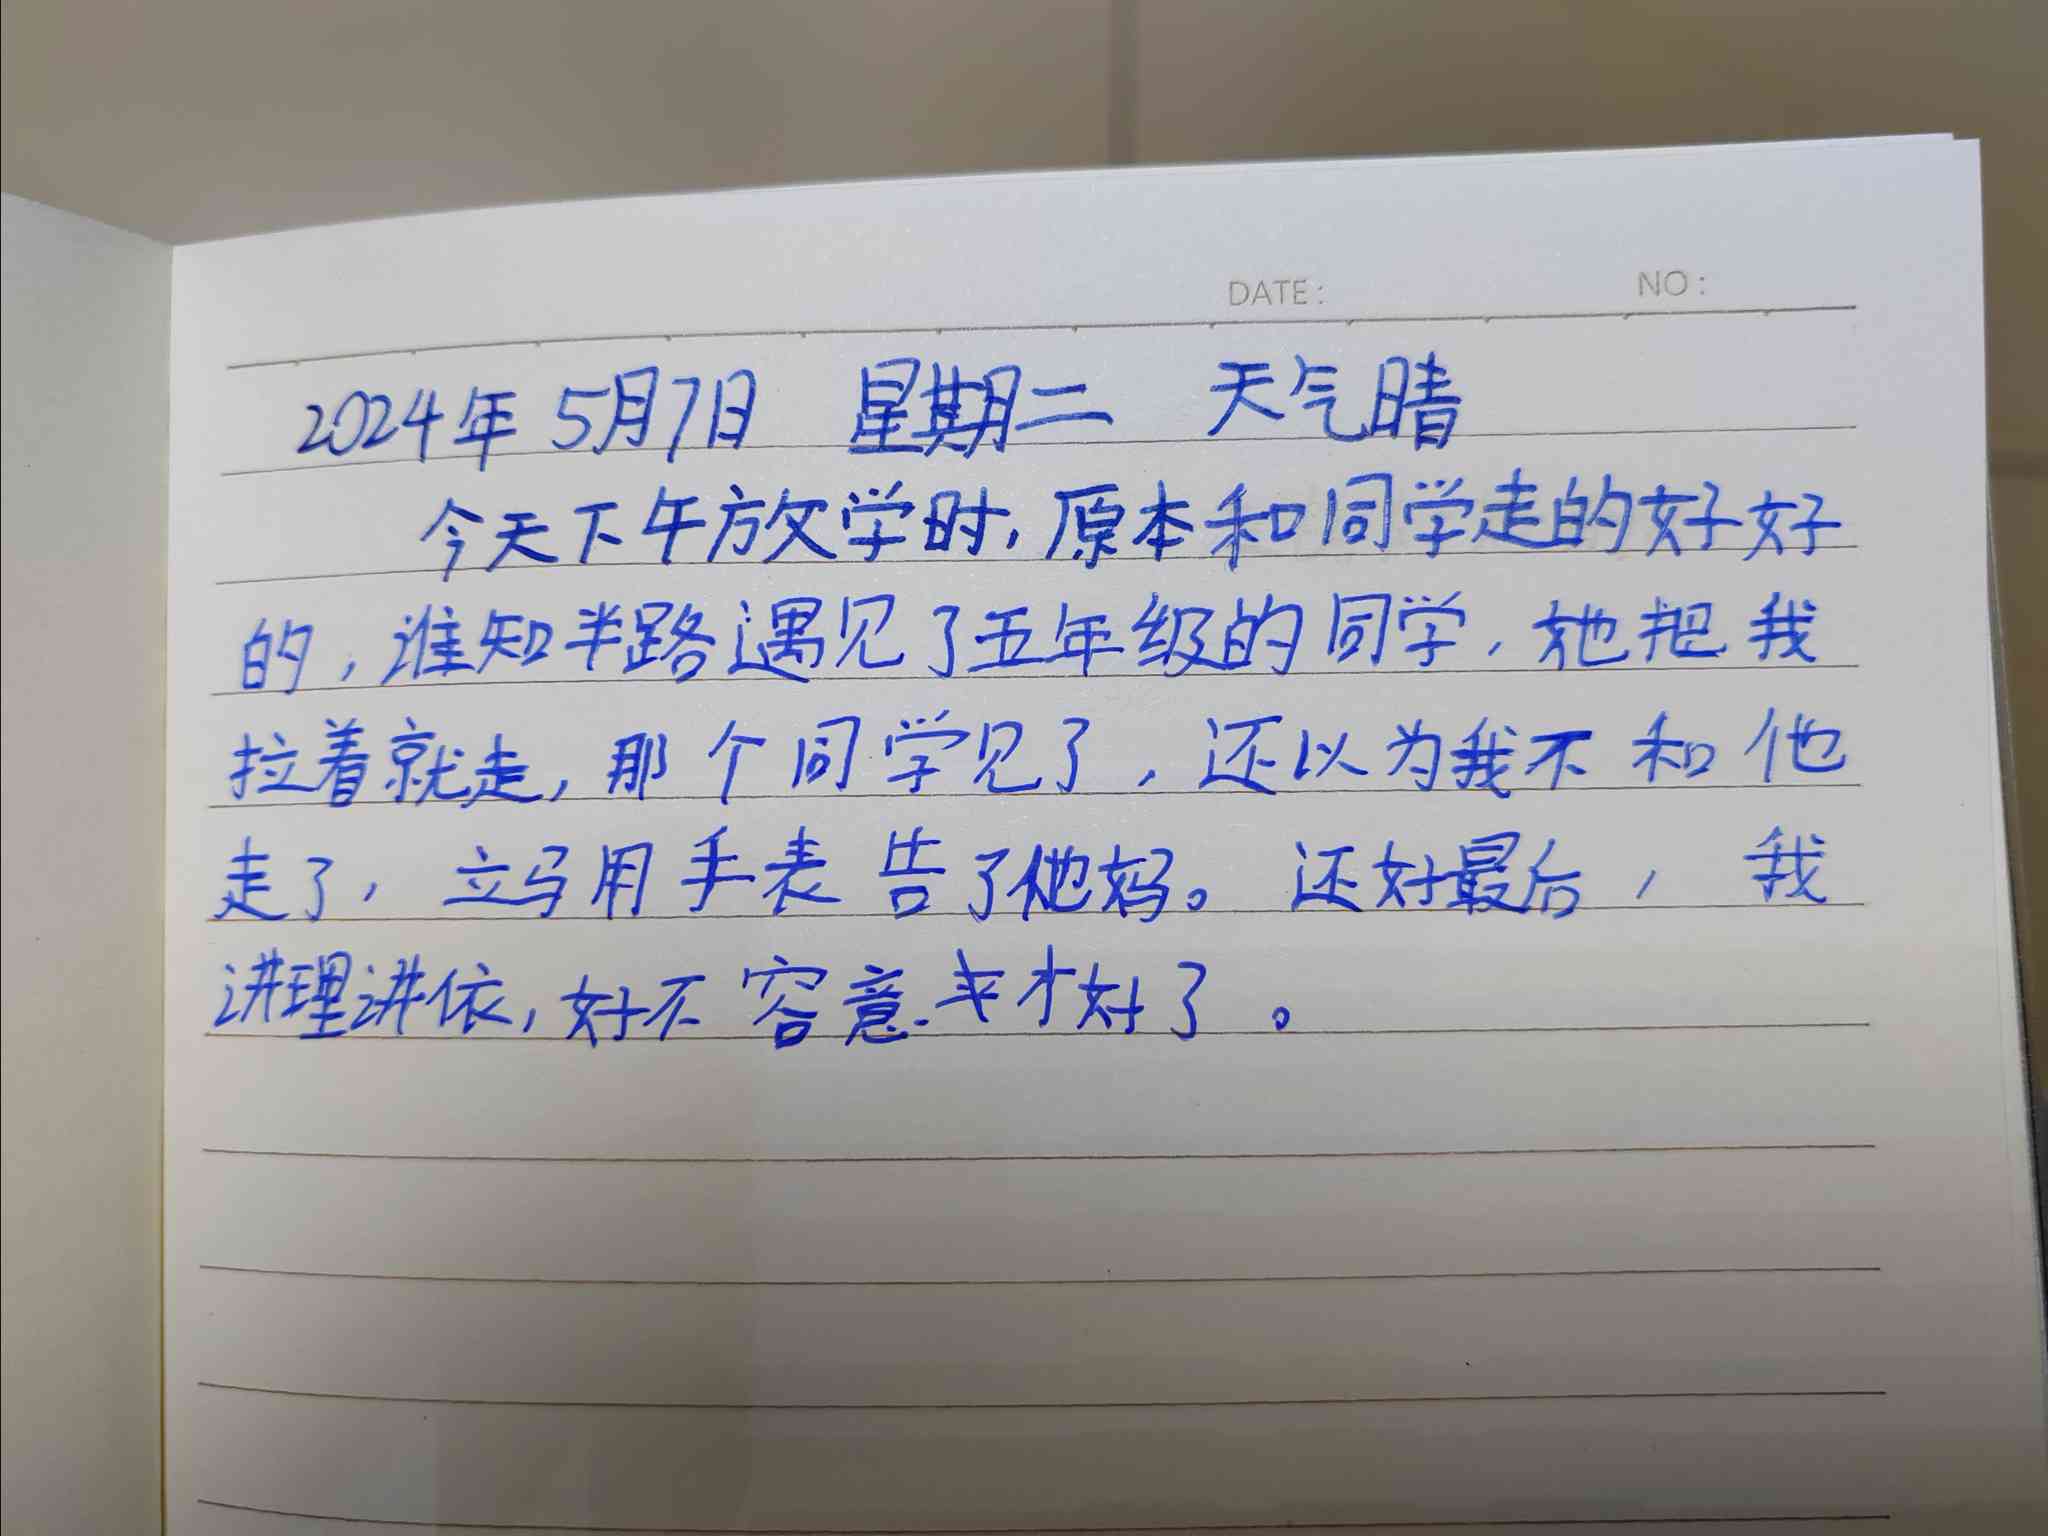 DATE: NO:
2024年5月7日 星期二 天气晴
今天下午放学时,原本和同学走的好好
的,谁知半路遇见了五年级的同学,她把我
拉着就走,那个同学见了,还以为我不和他
走了,立马用手表告了他妈。还好最后,我
讲理讲依,好不容意.才好了。